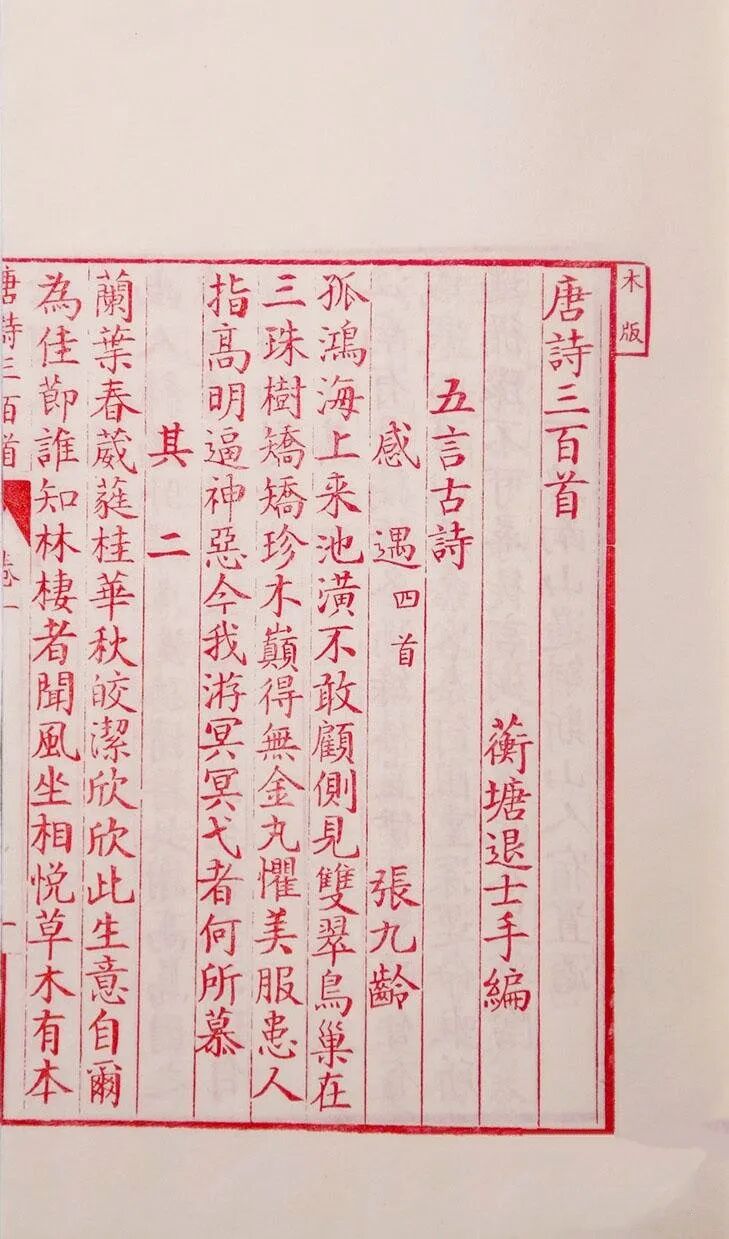 木版
唐詩三百首
蘅塘退士手編
五言古詩
感遇四首 張九齡
孤鴻海上来池潢不敢顧側見雙翠鳥巢在
三珠樹矯矯珍木巔得無金丸懼美服患人
指高明逼神惡今我游冥冥弋者何所慕
其二
蘭葉春葳蕤桂華秋皎潔欣欣此生意自爾
為佳節誰知林棲者聞風坐相悅草木有本
唐詩三百首 卷一 一